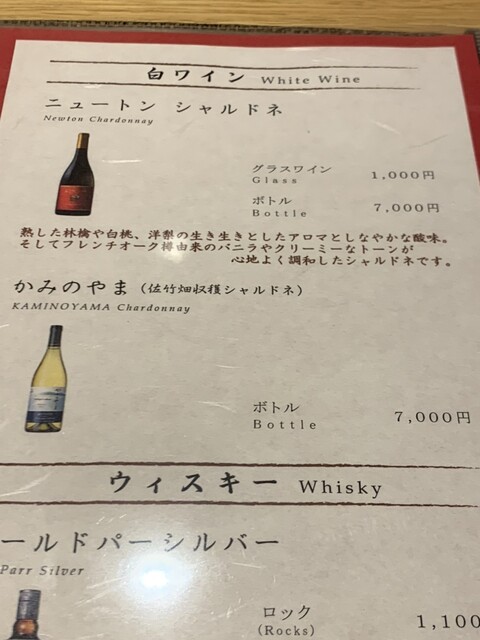 白ワイン White Wine
ニュートン シャルドネ
Newton Chardonnay
グラスワイン 1,000円
Glass
ボトル 7,000円
Bottle
熟した林檎や白桃、洋梨の生き生きとしたアロマとしなやかな酸味。
そしてフレンチオーク樽由来のバニラやクリーミーなトーンが
心地よく調和したシャルドネです。
かみのやま (佐竹畑収穫シャルドネ)
KAMINOYAMA Chardonnay
ボトル 7,000円
Bottle
ウィスキー Whisky
ールドパーシルバー
Parr Silver
ロック 1,100
(Rocks)